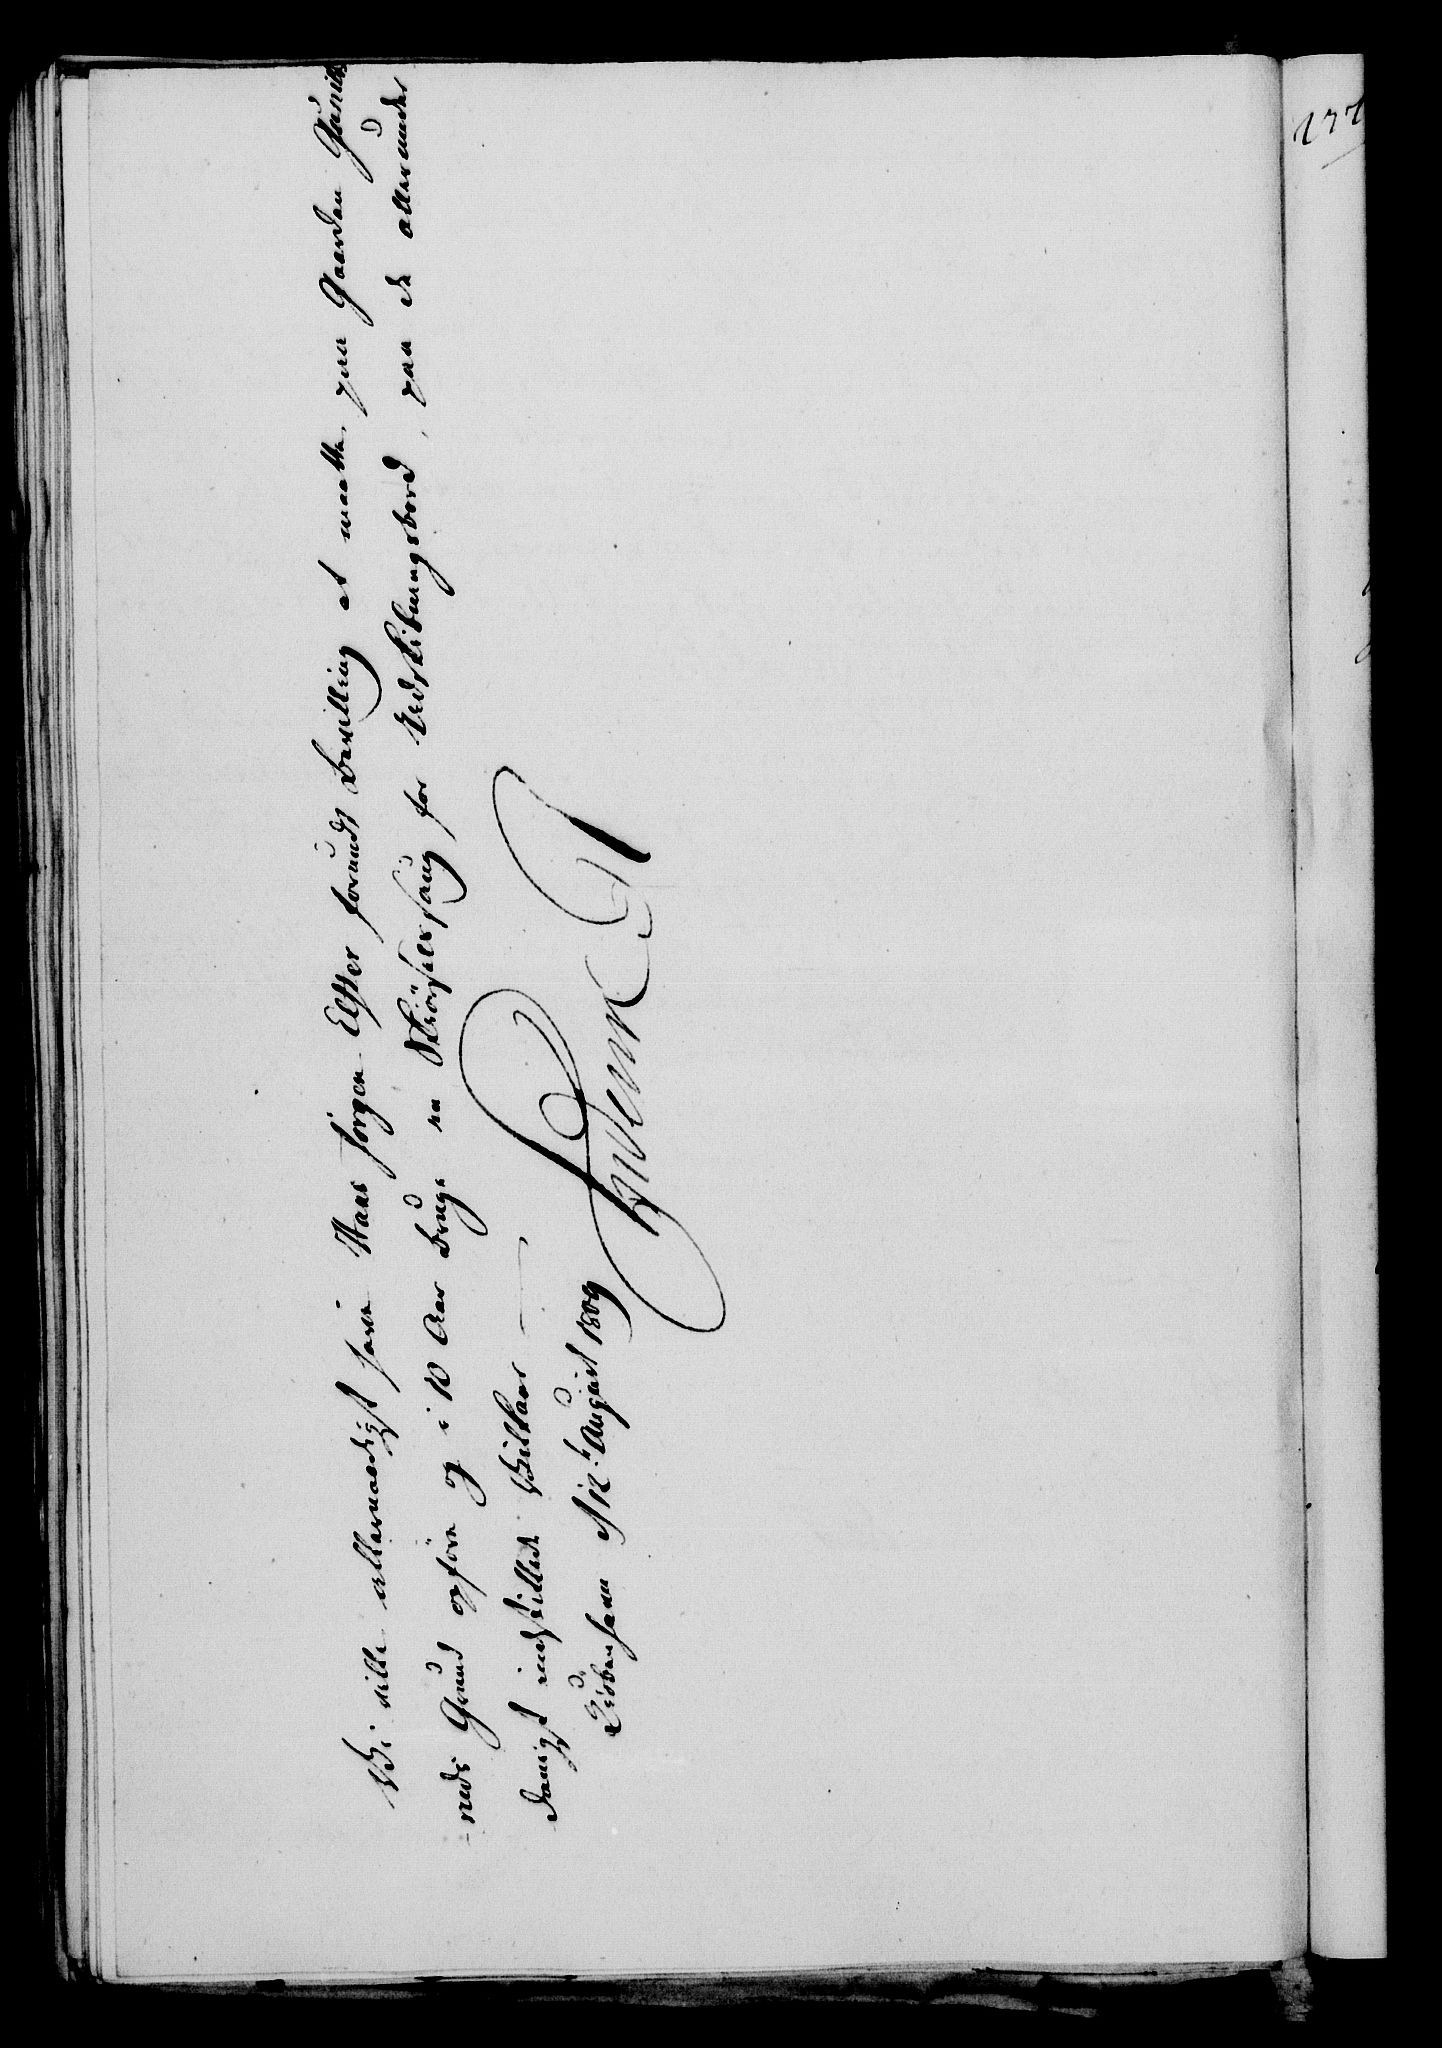 Vi ville allernaadigst have Hans Jörgen Elster forundt Bevilling at maatte, paa Gaarden
-neds Grund opföre og i 10 Aar bruge en Skiörselssaug for Udskibningsbord, paa de allerunder
danigst indstillede Vilkaar
Kiöbenhavn d. 12t August 1809
Frideric R
177